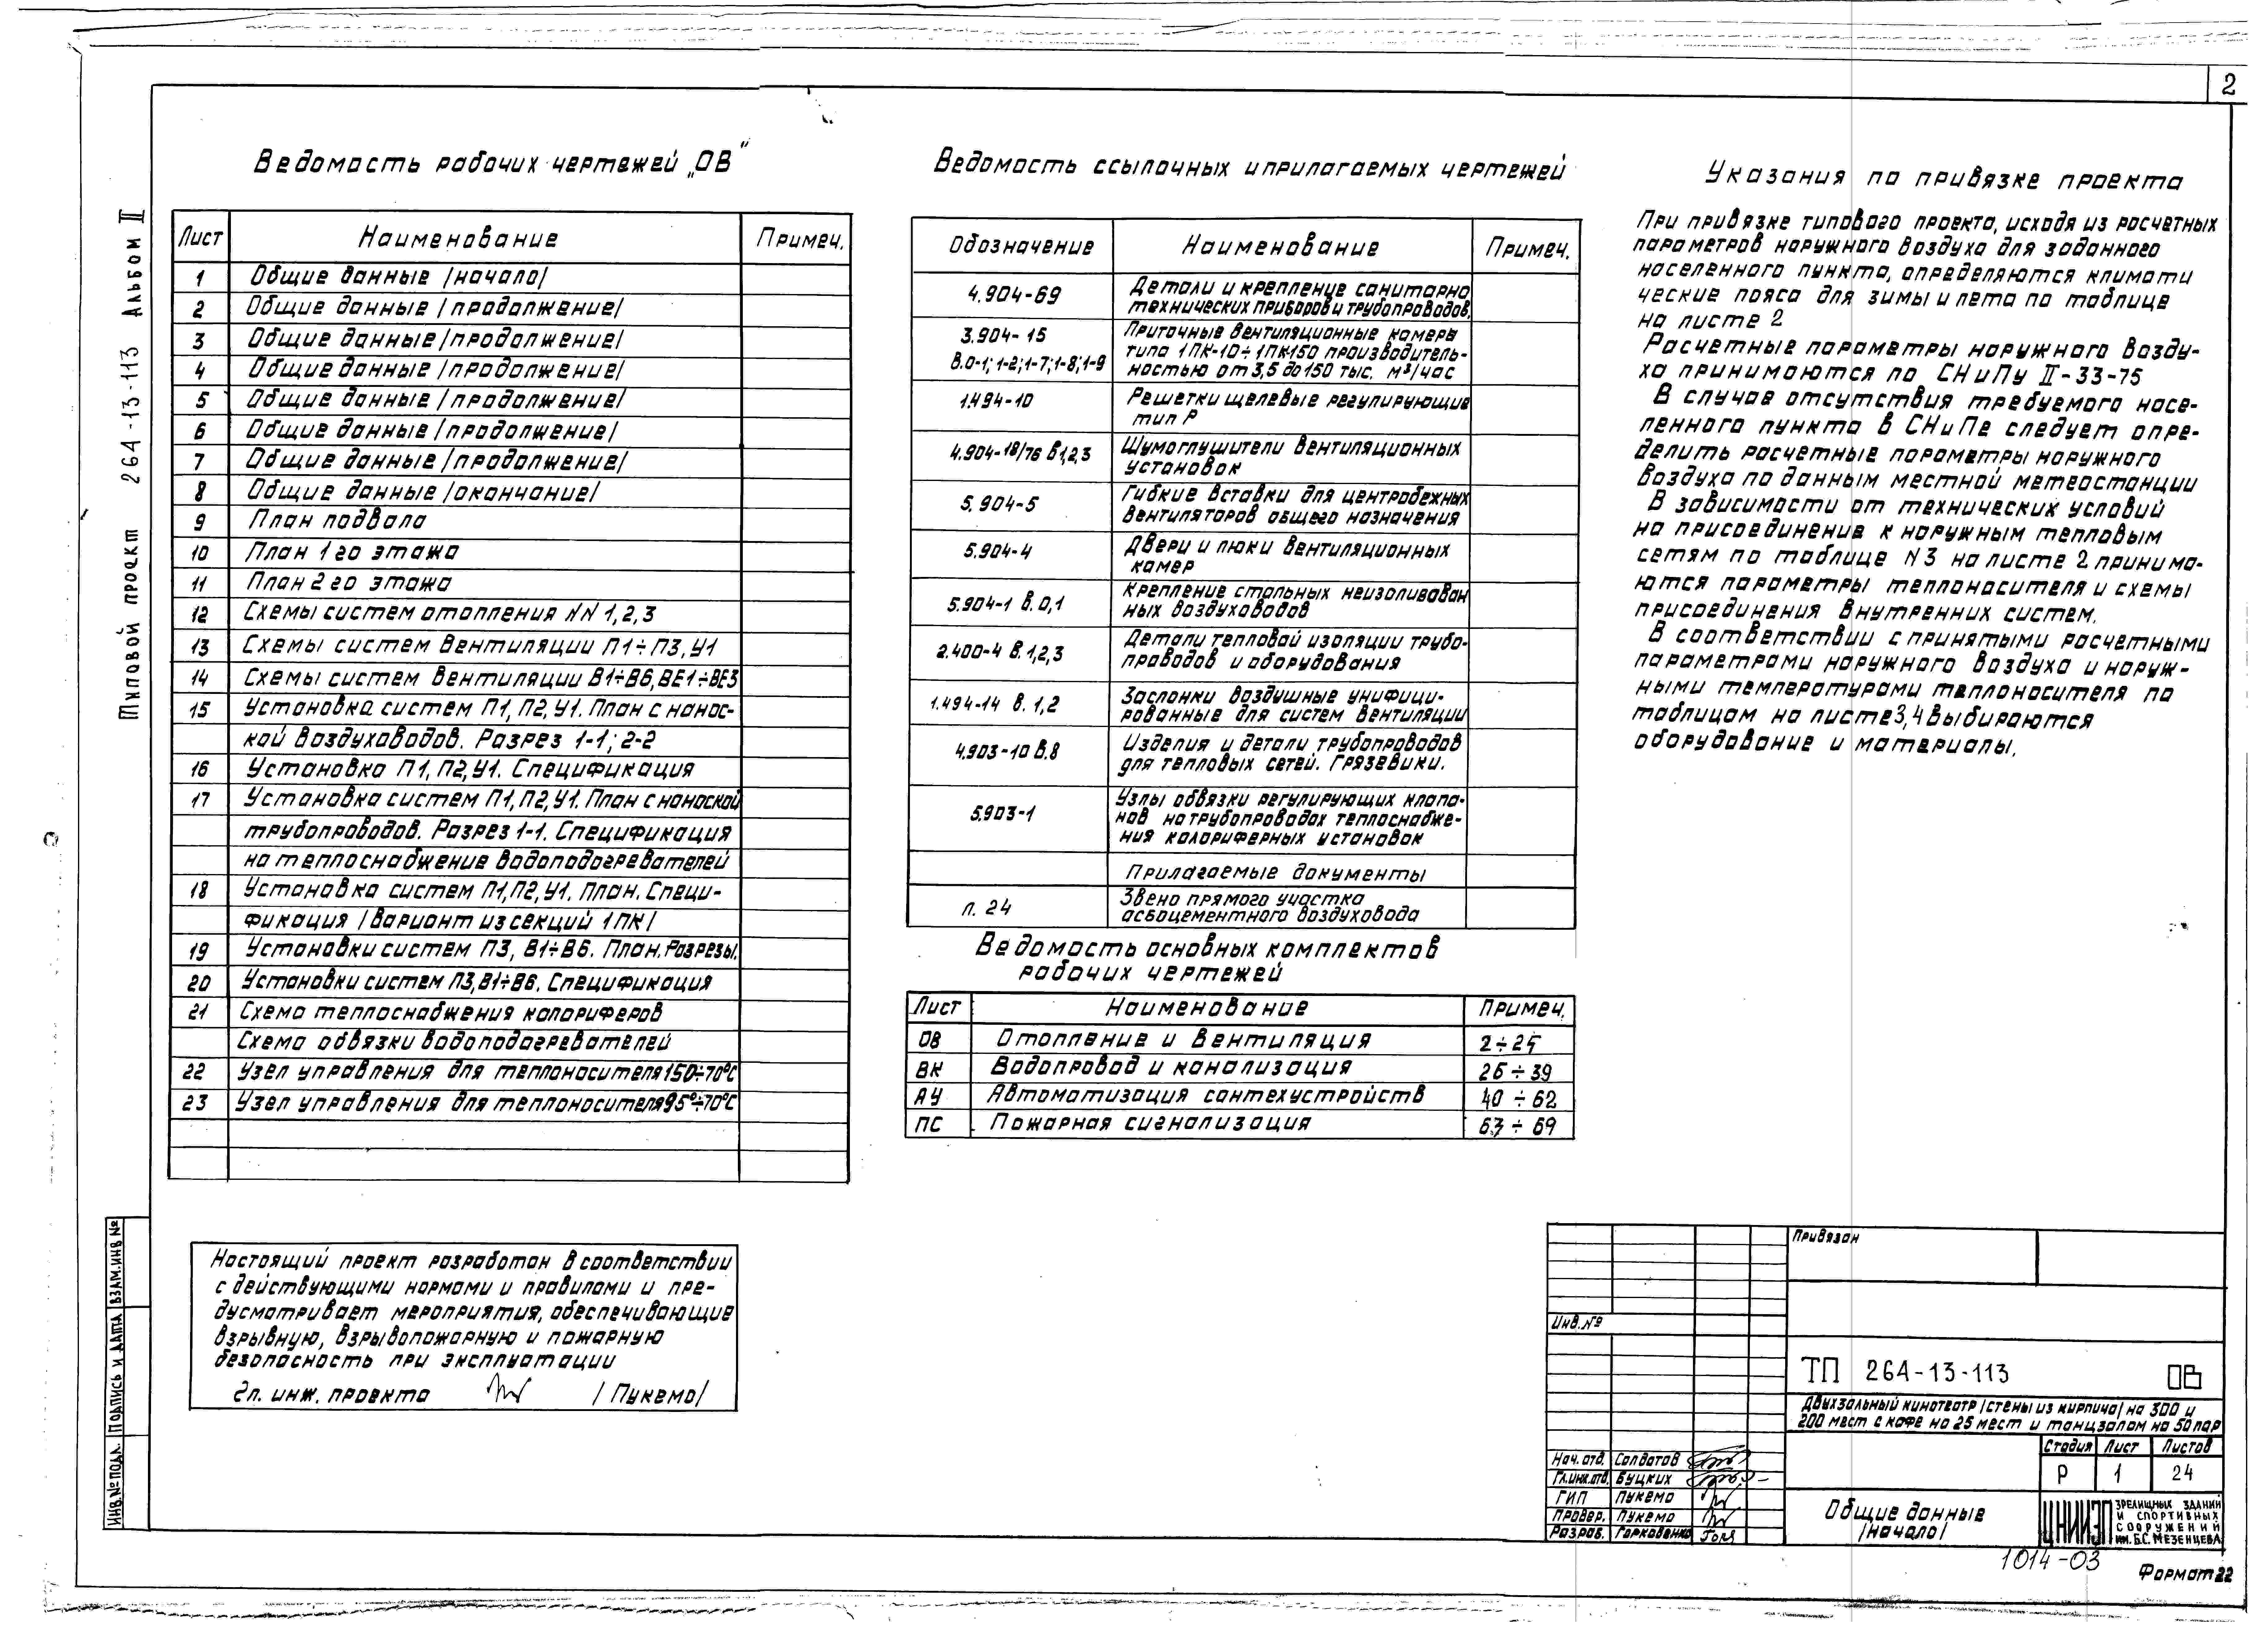 2
Типовой проект 264-13-113 Альбом II
Ведомость рабочих чертежей „ОВ"
Лист Наименование Примеч.
1 Общие данные /начало/
2 Общие данные /продолжение/
3 Общие данные /продолжение/
4 Общие данные /продолжение/
5 Общие данные /продолжение/
6 Общие данные /продолжение/
7 Общие данные /продолжение/
8 Общие данные /окончание/
9 План подвала
10 План 1го этажа
11 План 2го этажа
12 Схемы систем отопления NN 1,2,3
13 Схемы систем вентиляции П1÷П3, У1
14 Схемы систем вентиляции В1÷В6, ВЕ1÷ВЕ3
15 Установка систем П1, П2, У1. План с нанос-
кой воздуховодов. Разрез 1-1; 2-2
16 Установка П1, П2, У1. Спецификация
17 Установка систем П1, П2, У1. План с наноской
трубопроводов. Разрез 1-1. Спецификация
на теплоснабжение водоподогревателей
18 Установка систем П1, П2, У1. План. Специ-
фикация /вариант из секций 1ПК/
19 Установки систем П3, В1÷В6. План. Разрезы.
20 Установки систем П3, В1÷В6. Спецификация
21 Схема теплоснабжения калориферов
Схема обвязки водоподогревателей
22 Узел управления для теплоносителя 150÷70°С
23 Узел управления для теплоносителя 95°÷70°С
Настоящий проект разработан в соответствии
с действующими нормами и правилами и пре-
дусматривает мероприятия, обеспечивающие
взрывную, взрывопожарную и пожарную
безопасность при эксплуатации
Гл. инж. проекта /Пукемо/
Ведомость ссылочных и прилагаемых чертежей
Обозначение Наименование Примеч.
4.904-69 Детали и крепление санитарно
технических приборов и трубопроводов.
3.904-15 Приточные вентиляционные камеры
в.0-1; 1-2; 1-7; 1-8; 1-9 типа 1ПК-10÷1ПК150 производитель-
ностью от 3,5 до 150 тыс. м³/час
1.494-10 Решетки щелевые регулирующие
тип Р
4.904-18/76 в1,2,3 Шумоглушители вентиляционных
установок
5.904-5 Гибкие вставки для центробежных
вентиляторов общего назначения
5.904-4 Двери и люки вентиляционных
камер
5.904-1 в.0,1 Крепление стальных неизолирован
ных воздуховодов
2.400-4 в.1,2,3 Детали тепловой изоляции трубо-
проводов и оборудования
1.494-14 в. 1,2 Заслонки воздушные унифици-
рованные для систем вентиляции
4.903-10 в.8 Изделия и детали трубопроводов
для тепловых сетей. Грязевики.
5.903-1 Узлы обвязки регулирующих клапа-
нов на трубопроводах теплоснабже-
ния калориферных установок
Прилагаемые документы
л. 24 Звено прямого участка
асбоцементного воздуховода
Ведомость основных комплектов
рабочих чертежей
Лист Наименование Примеч.
ОВ Отопление и вентиляция 2÷25
ВК Водопровод и канализация 26÷39
АУ Автоматизация сантехустройств 40÷62
ПС Пожарная сигнализация 63÷69
Указания по привязке проекта
При привязке типового проекта, исходя из расчетных
параметров наружного воздуха для заданного
населенного пункта, определяются климати
ческие пояса для зимы и лета по таблице
на листе 2
Расчетные параметры наружного возду-
ха принимаются по СНиПу II-33-75
В случае отсутствия требуемого насе-
ленного пункта в СНиПе следует опре-
делить расчетные параметры наружного
воздуха по данным местной метеостанции
В зависимости от технических условий
на присоединение к наружным тепловым
сетям по таблице N3 на листе 2 принима-
ются параметры теплоносителя и схемы
присоединения внутренних систем.
В соответствии с принятыми расчетными
параметрами наружного воздуха и наруж-
ными температурами теплоносителя по
таблицам на листе 3,4 выбираются
оборудование и материалы.
Привязан
Инв.№
ТП 264-13-113 ОВ
Двухзальный кинотеатр /стены из кирпича/ на 300 и
200 мест с кафе на 25 мест и танцзалом на 50 пар
Стадия Лист Листов
Р 1 24
Нач. отд. Солдатов
Гл.инж.отд. Буцких
ГИП Пукемо
Провер. Пукемо
Разраб. Горковенко
Общие данные
/начало/
ЦНИИЭП
ЗРЕЛИЩНЫХ ЗДАНИЙ
И СПОРТИВНЫХ
СООРУЖЕНИЙ
ИМ. Б.С. МЕЗЕНЦЕВА
1014-03
Формат 22
ИНВ.№ ПОДЛ. ПОДПИСЬ И ДАТА ВЗАМ.ИНВ №